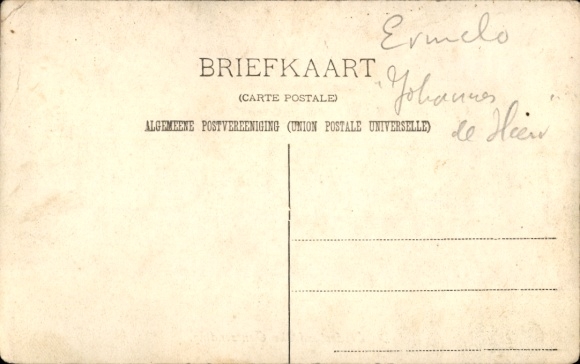 Ermelo
BRIEFKAART
(CARTE POSTALE)
"Johannes
de Heer"
ALGEMEENE POSTVEREENIGING (UNION POSTALE UNIVERSELLE)